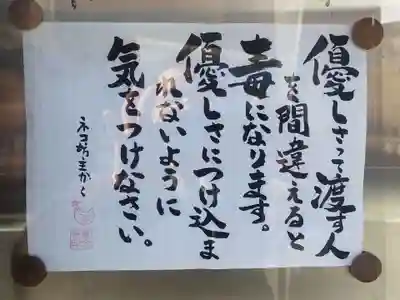 優しさって渡す人
を間違えると
毒になります。
優しさにつけ込ま
れないように
気をつけなさい。
ネコ坊主から